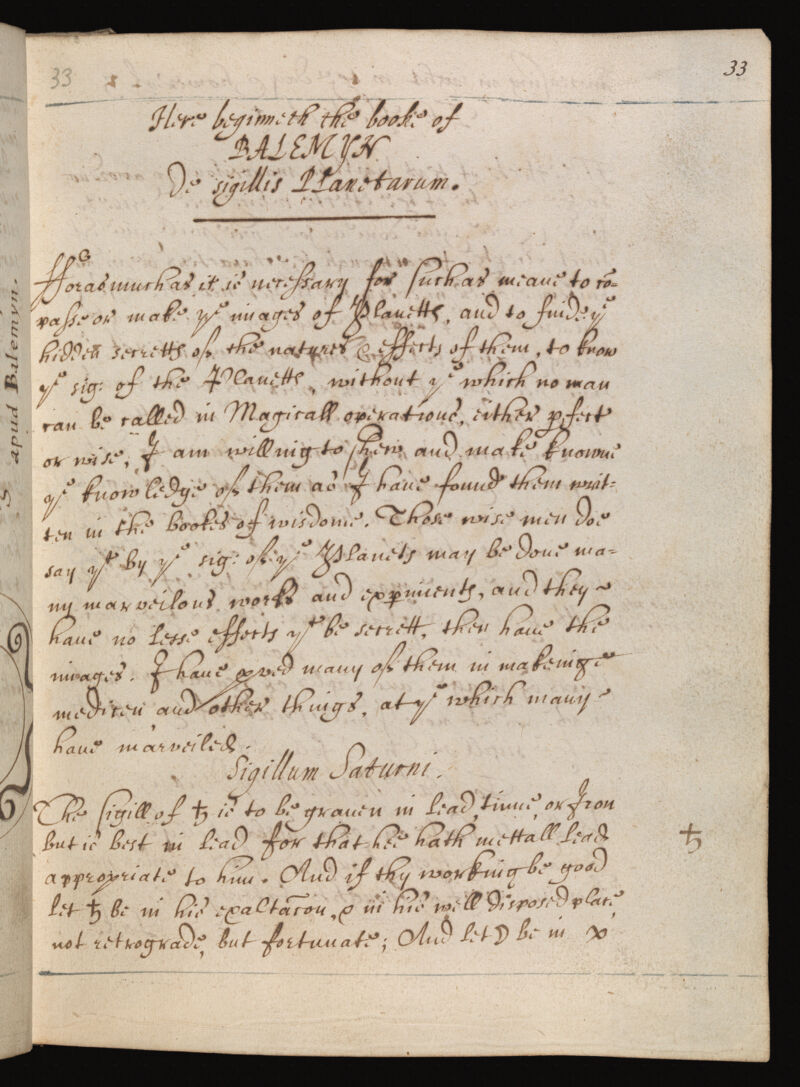 33
33
Here beginneth the booke of
BALEMYN
De sigillis Planetarum.
Fforasmuch as it is necessary for such as meane to co-
passe or make ye images of Planetts, and to finde ye
hidden secretts of the natures & effects of them, to know
ye sig: of the Planetts, without ye which no man
can be called in Magicall operations, either pfect
or wise, I am willing to shew and make knowne
ye knowledge of them as I haue found them writ-
ten in the bookes of wisdome. Those wise men doe
say yt by ye sig: of ye Planets may be done ma-
ny marveilous works and expiments, and they
haue no lesse effects yt be secrett, then haue the
images. I haue pved many of them in makeinge
medicen and other things, at ye which many
haue marveiled.
Sigillum Saturni.
The sigill of ♄ is to be grauen in lead, tinne, or Iron
but is best in lead for that hee hath mettall lead
♄
appropriate to him. And if thy working be good
let ♄ be in his exaltacon, & in his well disposed place,
not retrograde, but fortunate; And let ☽ be in
apud Balemyn.